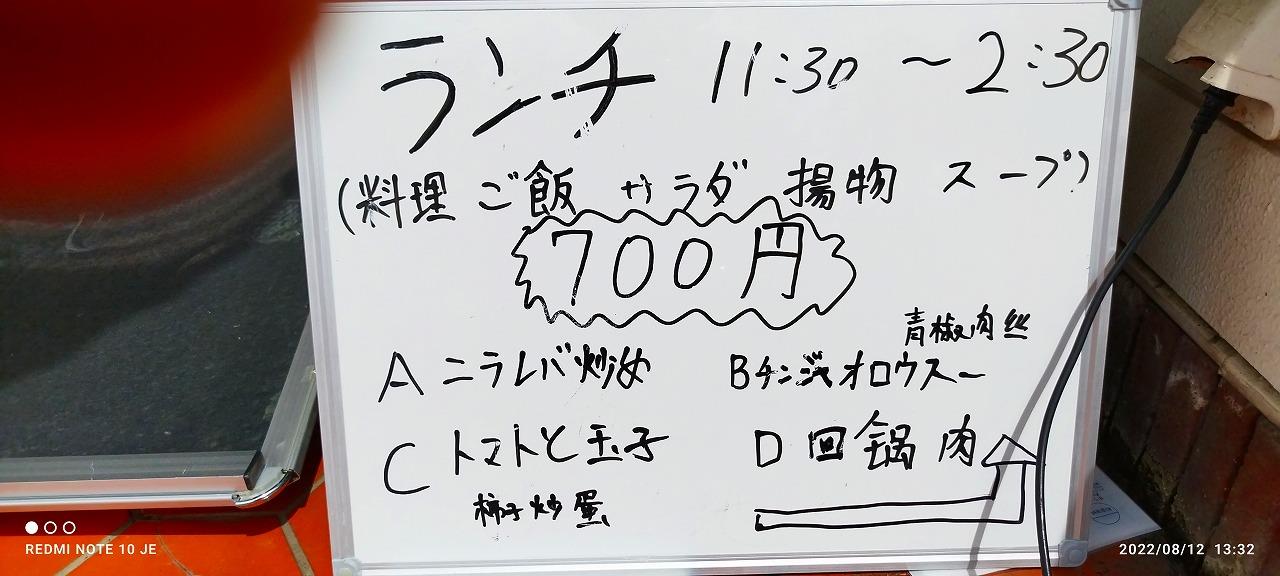 ランチ 11:30 ～ 2:30
(料理 ご飯 サラダ 揚物 スープ)
700円
青椒肉丝
A ニラレバ炒め B チンジャオロウスー
C トマトと玉子 D 回鍋肉
柿子炒蛋
REDMI NOTE 10 JE
2022/08/12 13:32